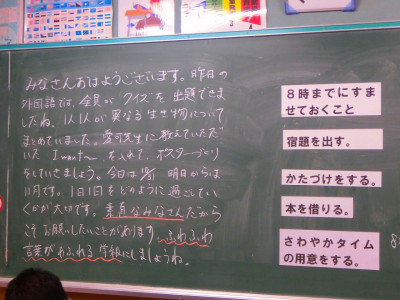 みなさんおはようございます。昨日の
外国語では、全員がクイズを出題できま
したね。1人1人が異なる生き物について
まとめていました。先生に教えていただ
いた I want〜 を入れて、ポスターづくり
をしていきましょう。今日は 明日からは
11月です。1日1日をどのように過ごしてい
くかが大切です。素直なみなさんだから
こそお願いしたいことがあります。ふわふわ
言葉があふれる学級にしましょうね。
8時までにすま
せておくこと
宿題を出す。
かたづけをする。
本を借りる。
さわやかタイム
の用意をする。